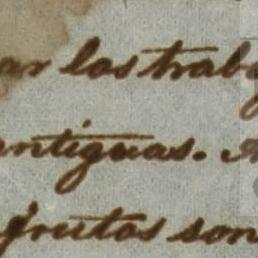 ar los trab
antiguas.
frutos son